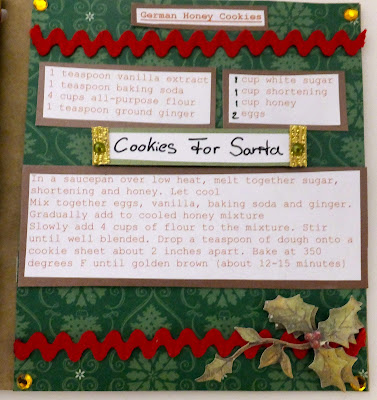 German Honey Cookies
1 teaspoon vanilla extract
1 teaspoon baking soda
4 cups all-purpose flour
1 teaspoon ground ginger
1 cup white sugar
1 cup shortening
1 cup honey
2 eggs
Cookies For Santa
In a saucepan over low heat, melt together sugar,
shortening and honey. Let cool
Mix together eggs, vanilla, baking soda and ginger.
Gradually add to cooled honey mixture
Slowly add 4 cups of flour to the mixture. Stir
until well blended. Drop a teaspoon of dough onto a
cookie sheet about 2 inches apart. Bake at 350
degrees F until golden brown (about 12-15 minutes)